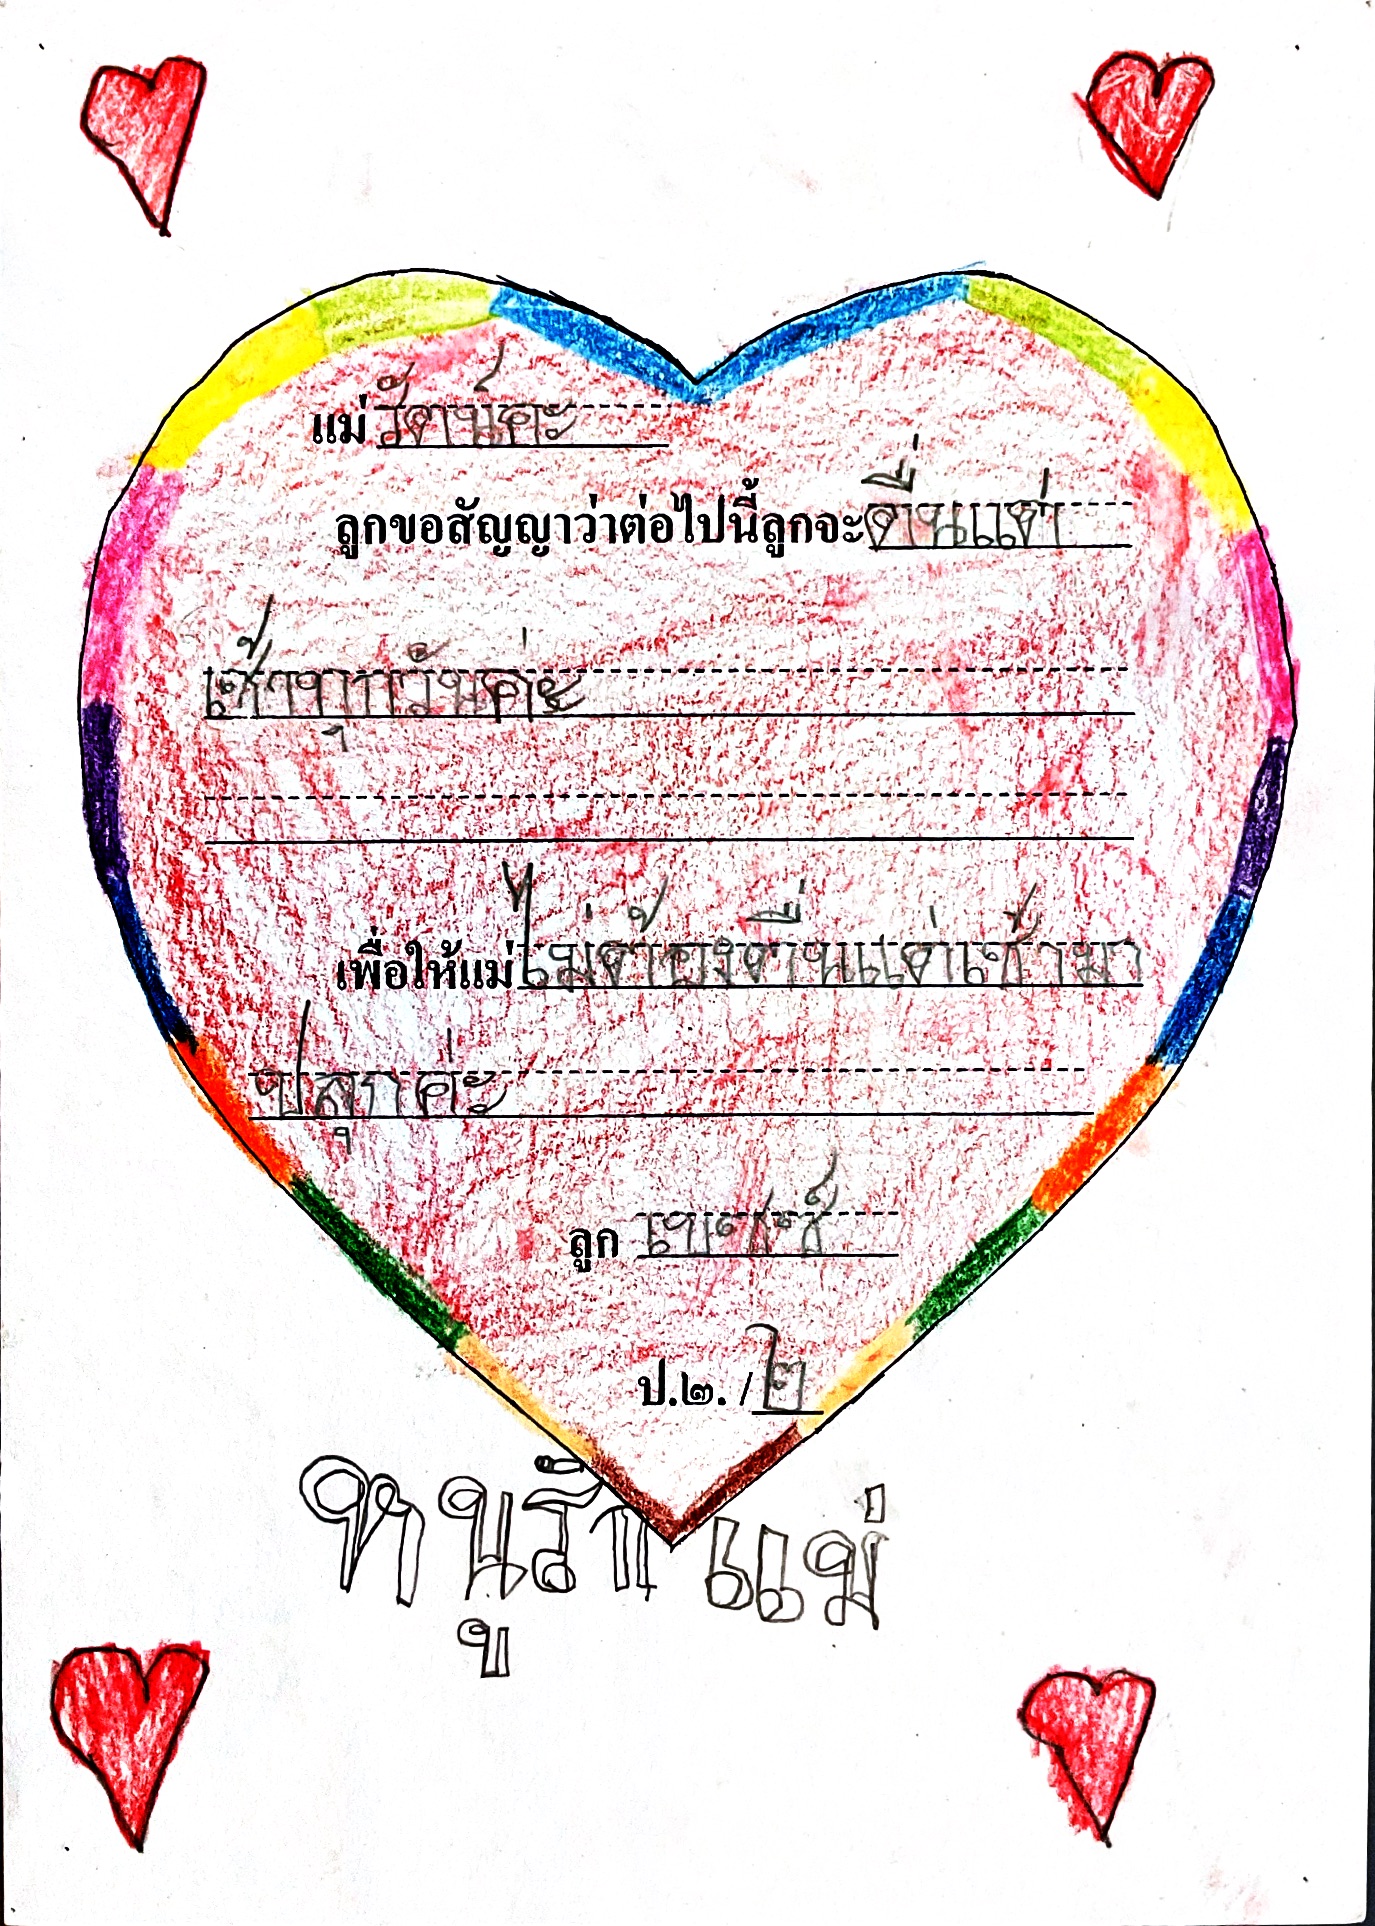 แม่ รัตน์คะ
ลูกขอสัญญาว่าต่อไปนี้ลูกจะตื่นแต่
เช้าทุกวันค่ะ
เพื่อให้แม่ไม่ต้องตื่นแต่เช้ามา
ปลุกค่ะ
ลูก
ป.๒. /๒
หนูรักแม่